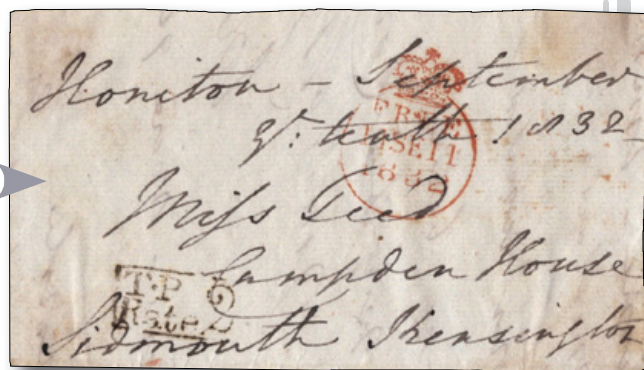 Honiton – September
yᵉ: tenth 1832
FREE
11SE11
1832
Miss Geed
Campden House
T.P
Rate 2
Sidmouth Kensington